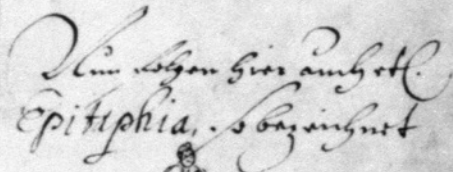 Nun volgen hier auch etl.
Epitiphia, so bezeichnet